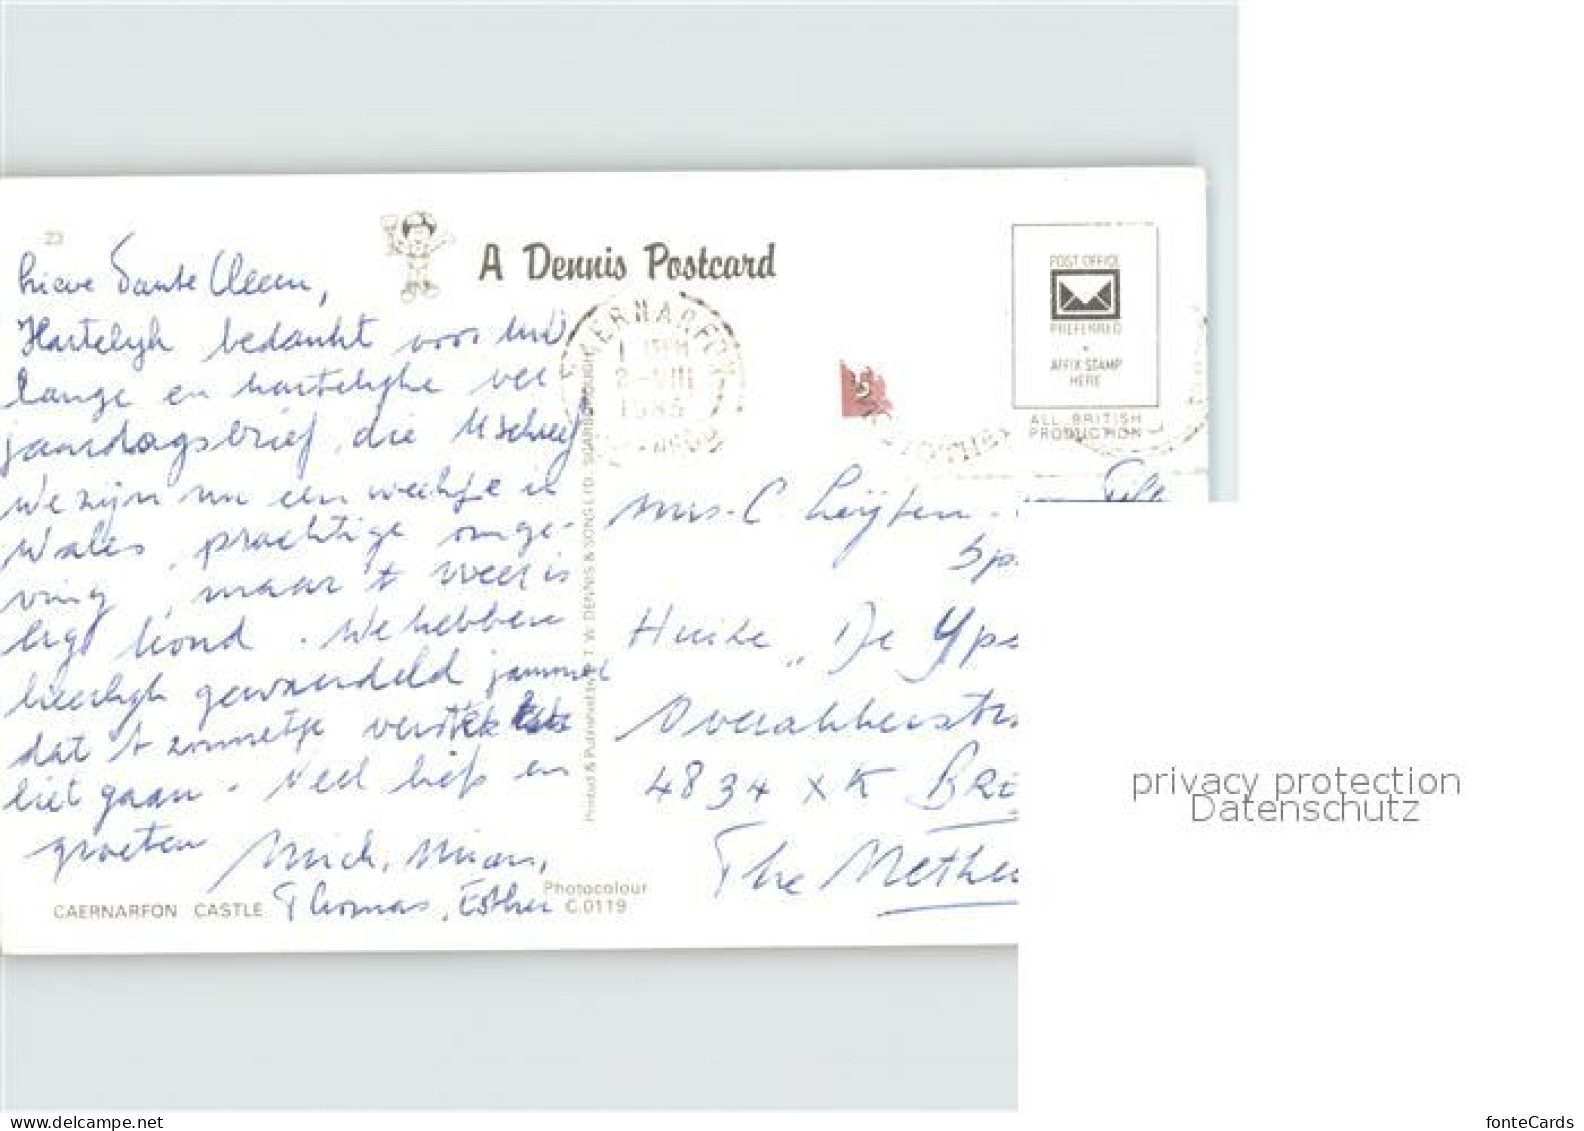 23
A Dennis Postcard
Lieve Tante Cleem,
Hartelijk bedankt voor Uw
lange en hartelijke ver
jaardagsbrief, die U schreef
We zijn nu een weekje in
Wales, prachtige omge-
ving, maar 't weer is
erg koud. We hebben
heerlijk gewandeld jammer
dat 't zonnetje verstek
liet gaan. Veel liefs en
groeten
Mirjam,
Thomas, Esther
CAERNARFON CASTLE
Photocolour
C.0119
Printed & Published by E.T.W. DENNIS & SONS LTD. SCARBOROUGH
CAERNARFON
2-VIII
1985
POST OFFICE
PREFERRED
AFFIX STAMP
HERE
ALL BRITISH
PRODUCTION
Mrs. C. Luijten-
Huize "De Yps
4834 XK BRE
The Nethe
privacy protection
Datenschutz
fonteCards